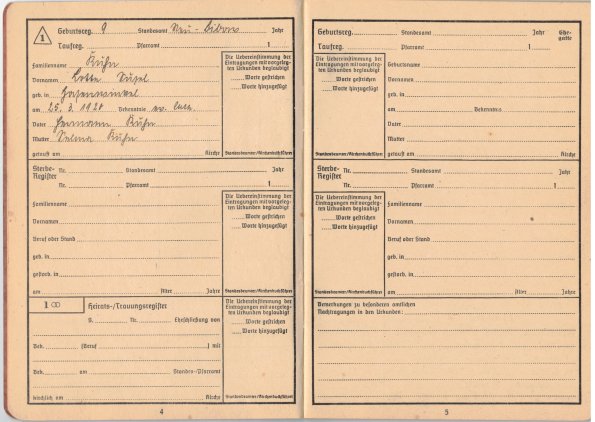 1
Geburtsreg. 9 Standesamt Neu- Jahr
Taufreg. Pfarramt 1
Familienname Kuhn
Vornamen Lotte
geb. in
am 25. 3. 1920 Bekenntnis ev. luth.
Vater Hermann Kuhn
Mutter Selma Kuhn
getauft am Kirche
Die Uebereinstimmung der
Eintragungen mit vorgeleg-
ten Urkunden beglaubigt
Worte gestrichen
Worte hinzugefügt
Standesbeamter/Kirchenbuchführer
Sterbe- Nr. Standesamt Jahr
Register Nr. Pfarramt 1
Familienname
Vornamen
Beruf oder Stand
geb. in
gestorb. in
am Alter Jahre
Die Uebereinstimmung der
Eintragungen mit vorgeleg-
ten Urkunden beglaubigt
Worte gestrichen
Worte hinzugefügt
Standesbeamter/Kirchenbuchführer
1 Heirats-/Trauungsregister
g. Nr. Eheschließung von
Geb. (Beruf ) mit
Geb. am Standes-/Pfarramt
kirchlich am Kirche
Die Uebereinstimmung der
Eintragungen mit vorgeleg-
ten Urkunden beglaubigt
Worte gestrichen
Worte hinzugefügt
Standesbeamter/Kirchenbuchführer
4
Geburtsreg. Standesamt Jahr Ehe-
gatte
Taufreg. Pfarramt 1
Die Uebereinstimmung der
Eintragungen mit vorgeleg-
ten Urkunden beglaubigt
Worte gestrichen
Worte hinzugefügt
Standesbeamter/Kirchenbuchführer
Familienname
Vornamen
geb. in
am Bekenntnis
Vater
Mutter
getauft am Kirche
Sterbe- Nr. Standesamt Jahr
Register Nr. Pfarramt 1
Die Uebereinstimmung der
Eintragungen mit vorgeleg-
ten Urkunden beglaubigt
Worte gestrichen
Worte hinzugefügt
Standesbeamter/Kirchenbuchführer
Familienname
Vornamen
Beruf oder Stand
geb. in
gestorb. in
am Alter Jahre
Bemerkungen zu besonderen amtlichen
Nachtragungen in den Urkunden:
5